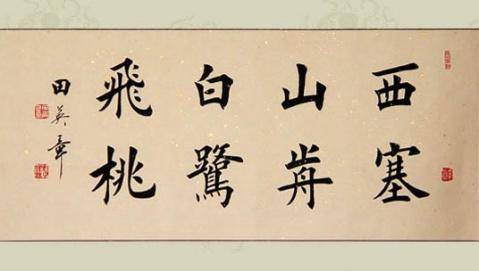 西塞
山歬
白鷺
飛桃
田英章